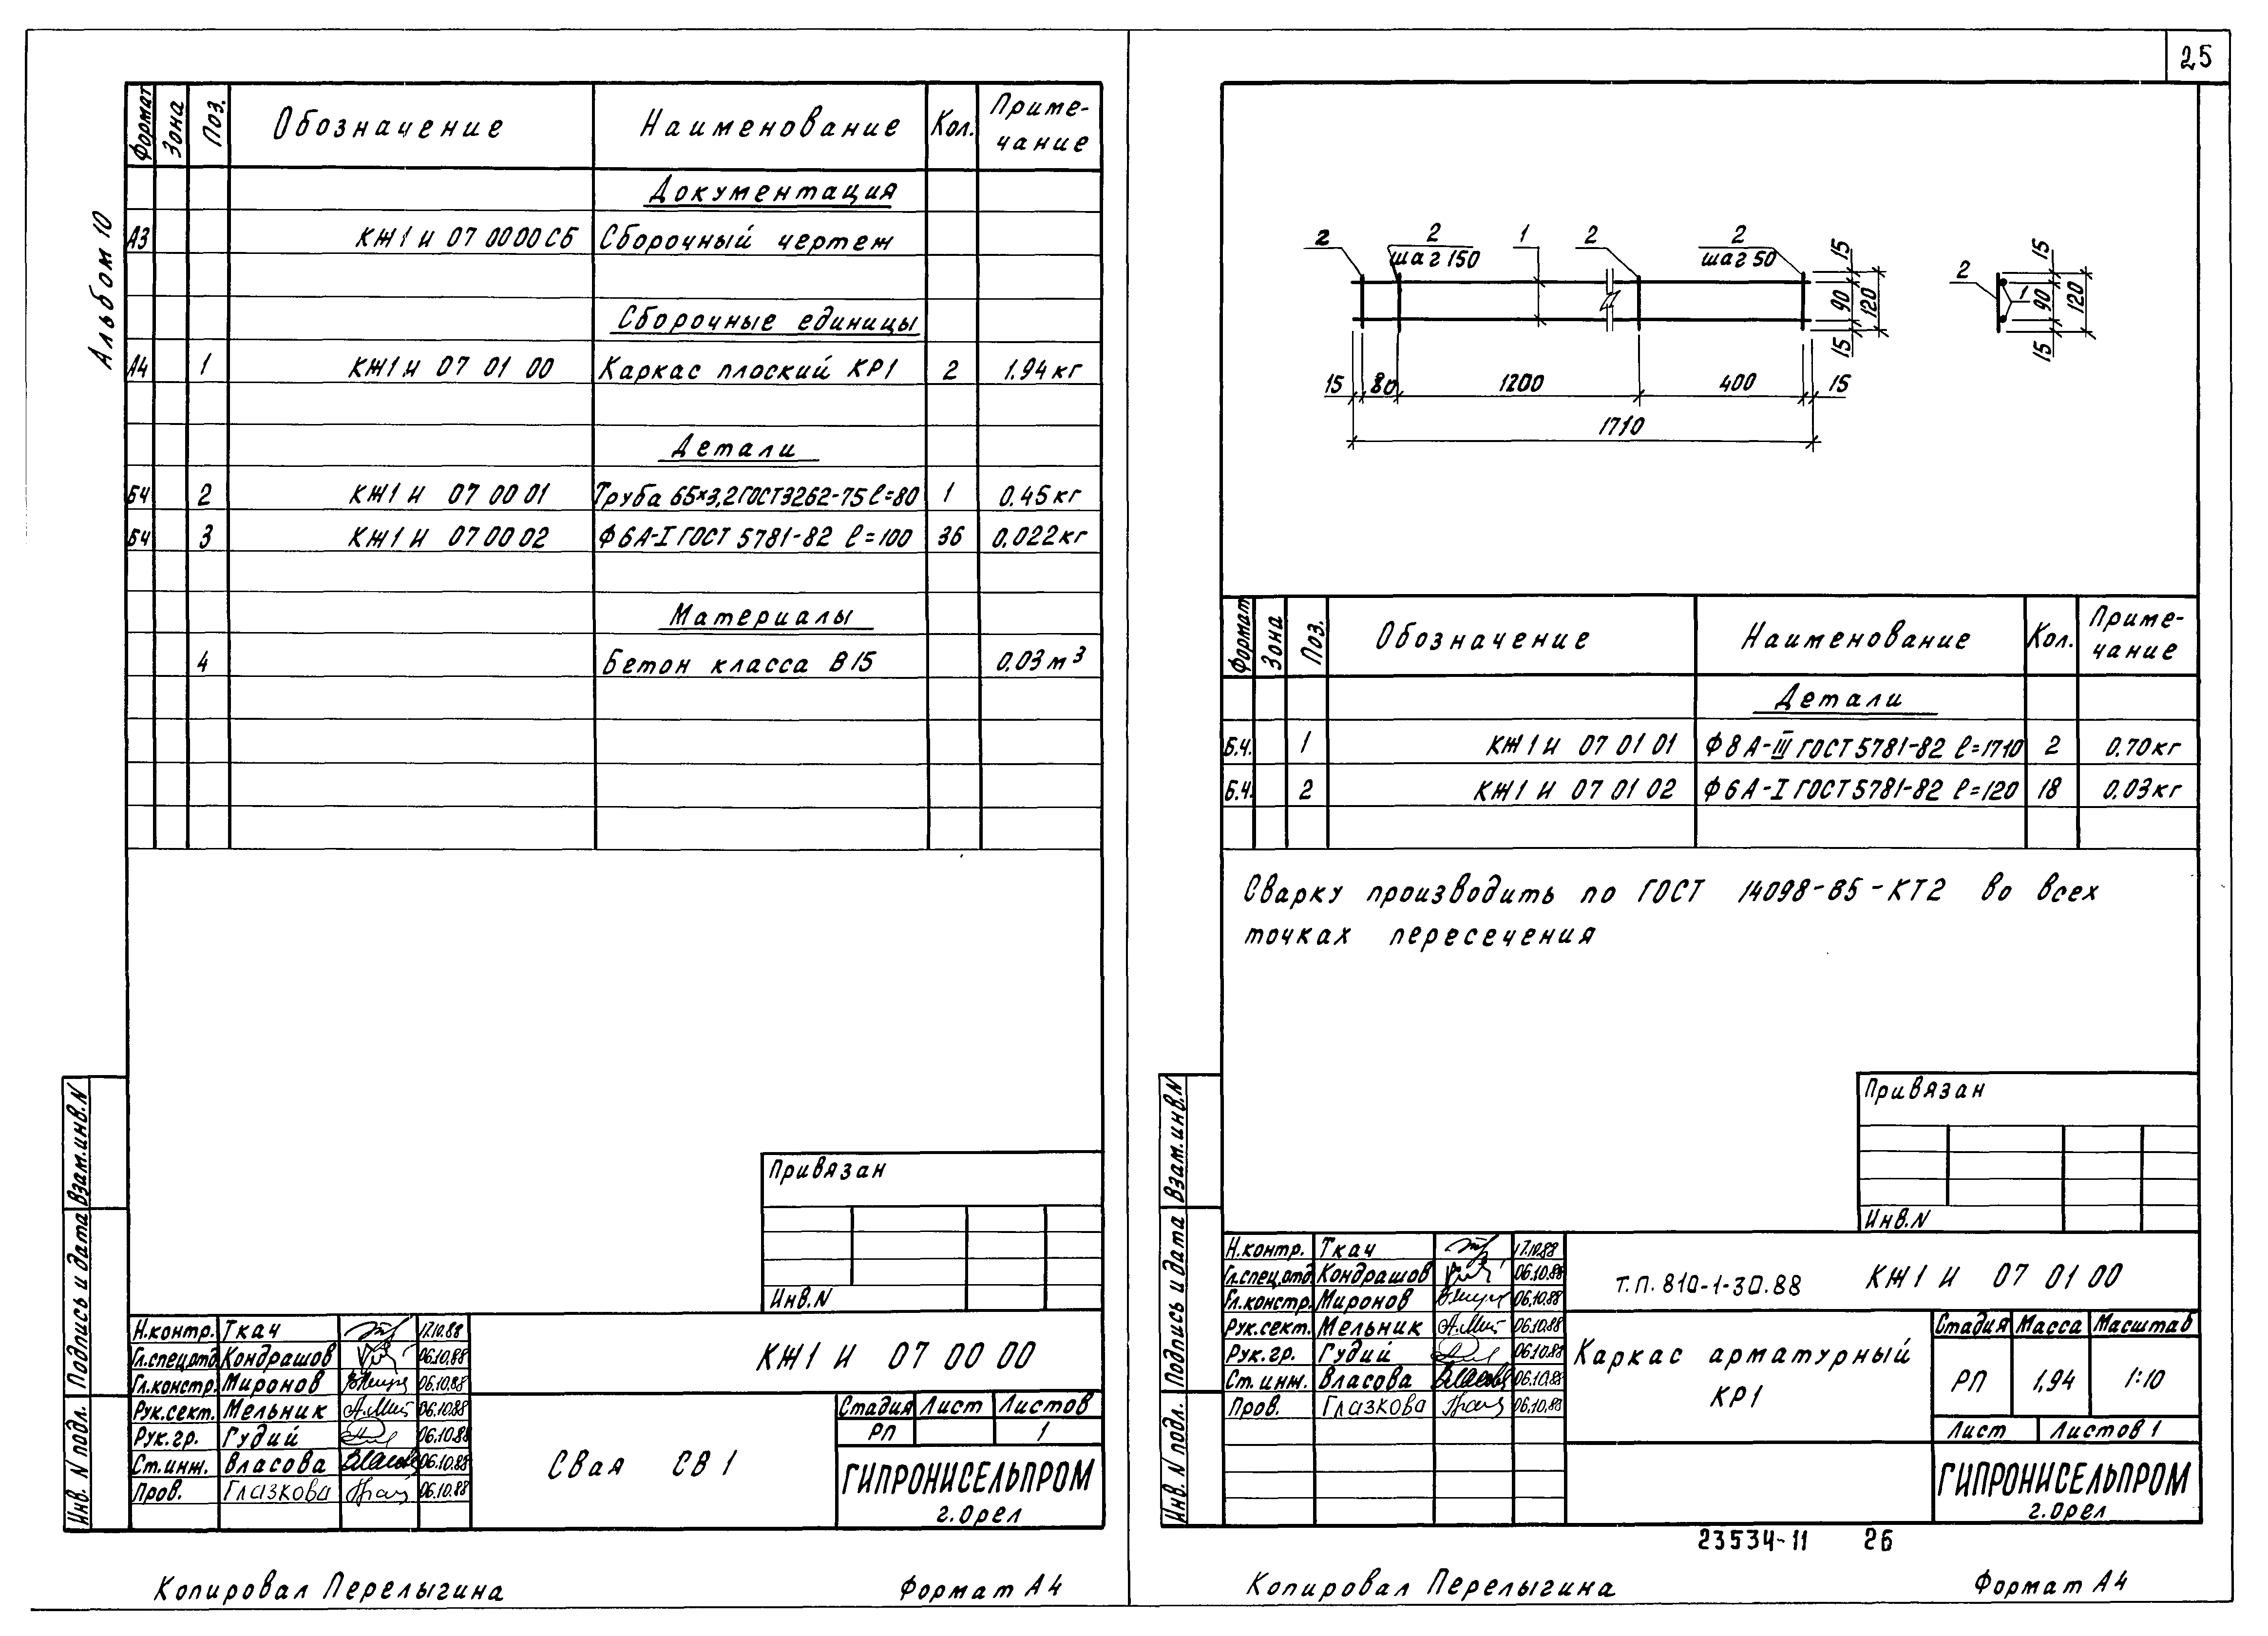 25
Альбом 10
Формат Зона Поз. Обозначение Наименование Кол. Приме-
чание
Документация
А3 КЖ1 И 07 00 00 СБ Сборочный чертеж
Сборочные единицы
А4 1 КЖ1 И 07 01 00 Каркас плоский КР1 2 1.94 кг
Детали
БЧ 2 КЖ1 И 07 00 01 Труба 65×3,2 ГОСТ 3262-75 ℓ=80 1 0.45 кг
БЧ 3 КЖ1 И 07 00 02 Ф6А-I ГОСТ 5781-82 ℓ=100 36 0.022 кг
Материалы
4 Бетон класса В15 0.03 м³
Привязан
Инв.N
Взам.инв.N
Подпись и дата
Инв. N подл.
Н.контр. Ткач 17.10.88
Гл.спец.отд Кондрашов 06.10.88
Гл.констр. Миронов 06.10.88
Рук.сект. Мельник 06.10.88
Рук.гр. Гудий 06.10.88
Ст.инж. Власова 06.10.88
Пров. Глазкова 06.10.88
КЖ1 И 07 00 00
Свая СВ1
Стадия Лист Листов
РП 1
ГИПРОНИСЕЛЬПРОМ
г.Орел
Копировал Перелыгина Формат А4
2 2 1 2 2
шаг 150 шаг 50
15 90 15 120
15 80 1200 400 15
1710
2 1
15 90 15 120
Формат Зона Поз. Обозначение Наименование Кол. Приме-
чание
Детали
Б.Ч. 1 КЖ1 И 07 01 01 Ф8А-III ГОСТ 5781-82 ℓ=1710 2 0.70 кг
Б.Ч. 2 КЖ1 И 07 01 02 Ф6А-I ГОСТ 5781-82 ℓ=120 18 0.03 кг
Сварку производить по ГОСТ 14098-85-КТ2 во всех
точках пересечения
Привязан
Инв.N
Взам.инв.N
Подпись и дата
Инв. N подл.
Н.контр. Ткач 17.10.88
Гл.спец.отд Кондрашов 06.10.88
Гл.констр. Миронов 06.10.88
Рук.сект. Мельник 06.10.88
Рук.гр. Гудий 06.10.88
Ст.инж. Власова 06.10.88
Пров. Глазкова 06.10.88
Т.П. 810-1-30.88 КЖ1 И 07 01 00
Каркас арматурный
КР1
Стадия Масса Масштаб
РП 1,94 1:10
Лист Листов 1
ГИПРОНИСЕЛЬПРОМ
г.Орел
23534-11 26
Копировал Перелыгина Формат А4